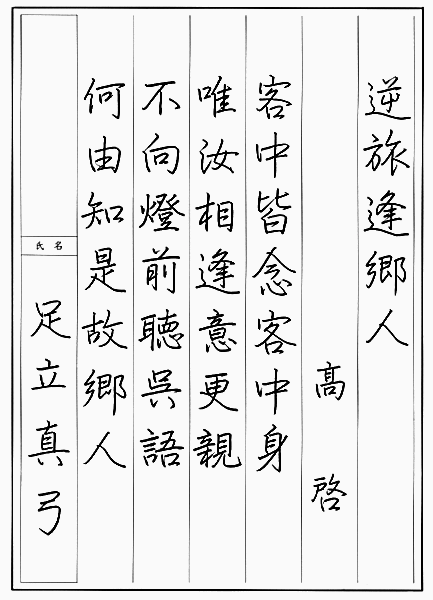 逆旅逢郷人
高啓
客中皆念客中身
唯汝相逢意更親
不向燈前聴呉語
何由知是故郷人
氏名
足立真弓